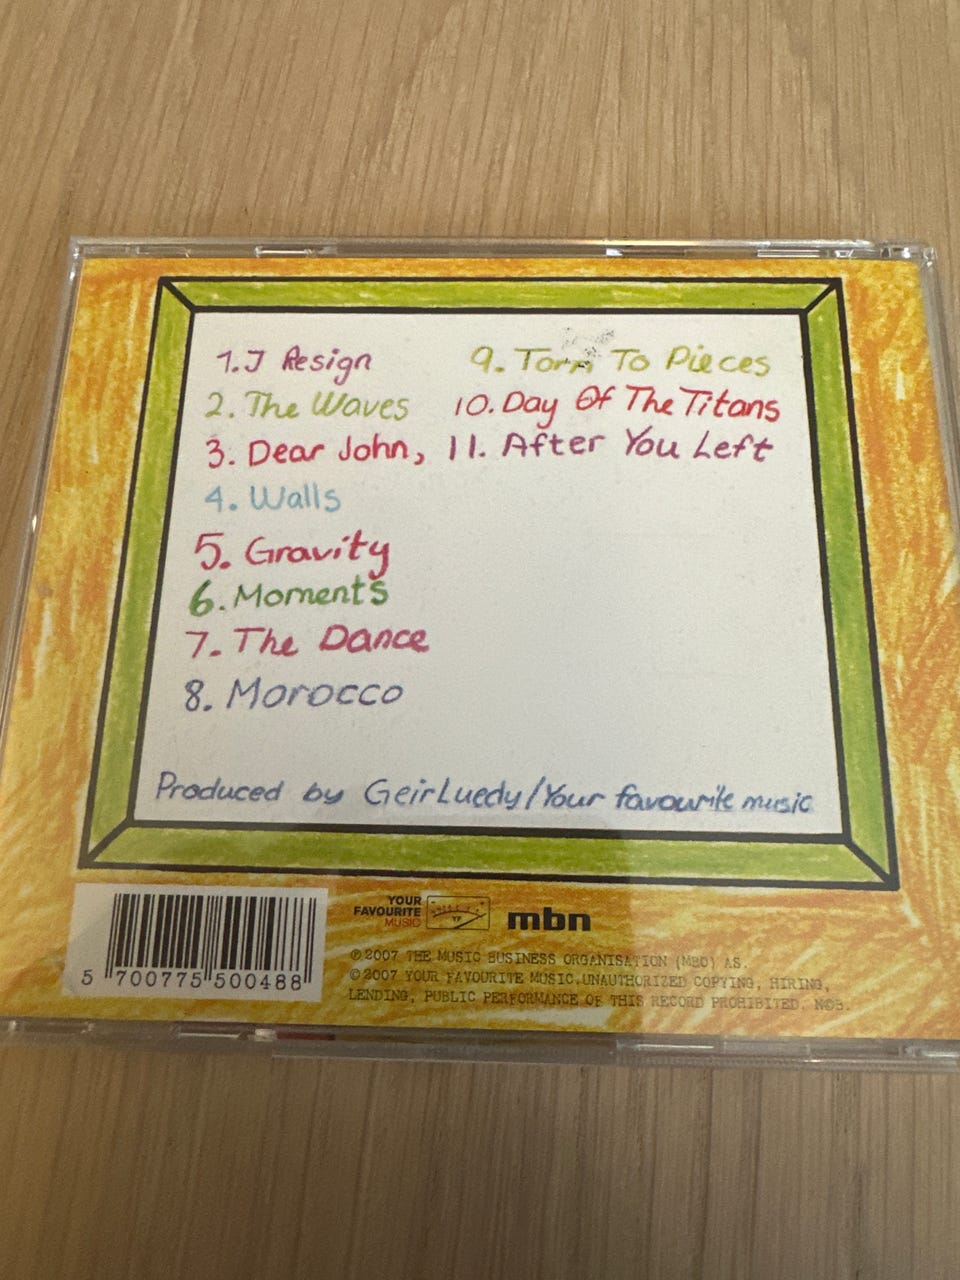 1. I Resign
2. The Waves
3. Dear John,
4. Walls
5. Gravity
6. Moments
7. The Dance
8. Morocco
9. Torn To Pieces
10. Day Of The Titans
11. After You Left
Produced by Geir Luedy/Your favourite music
5 700775 500488
YOUR
FAVOURITE
MUSIC
YF
mbn
℗ 2007 THE MUSIC BUSINESS ORGANISATION (MBO) AS.
© 2007 YOUR FAVOURITE MUSIC. UNAUTHORIZED COPYING, HIRING,
LENDING, PUBLIC PERFORMANCE OF THIS RECORD PROHIBITED. N©B.